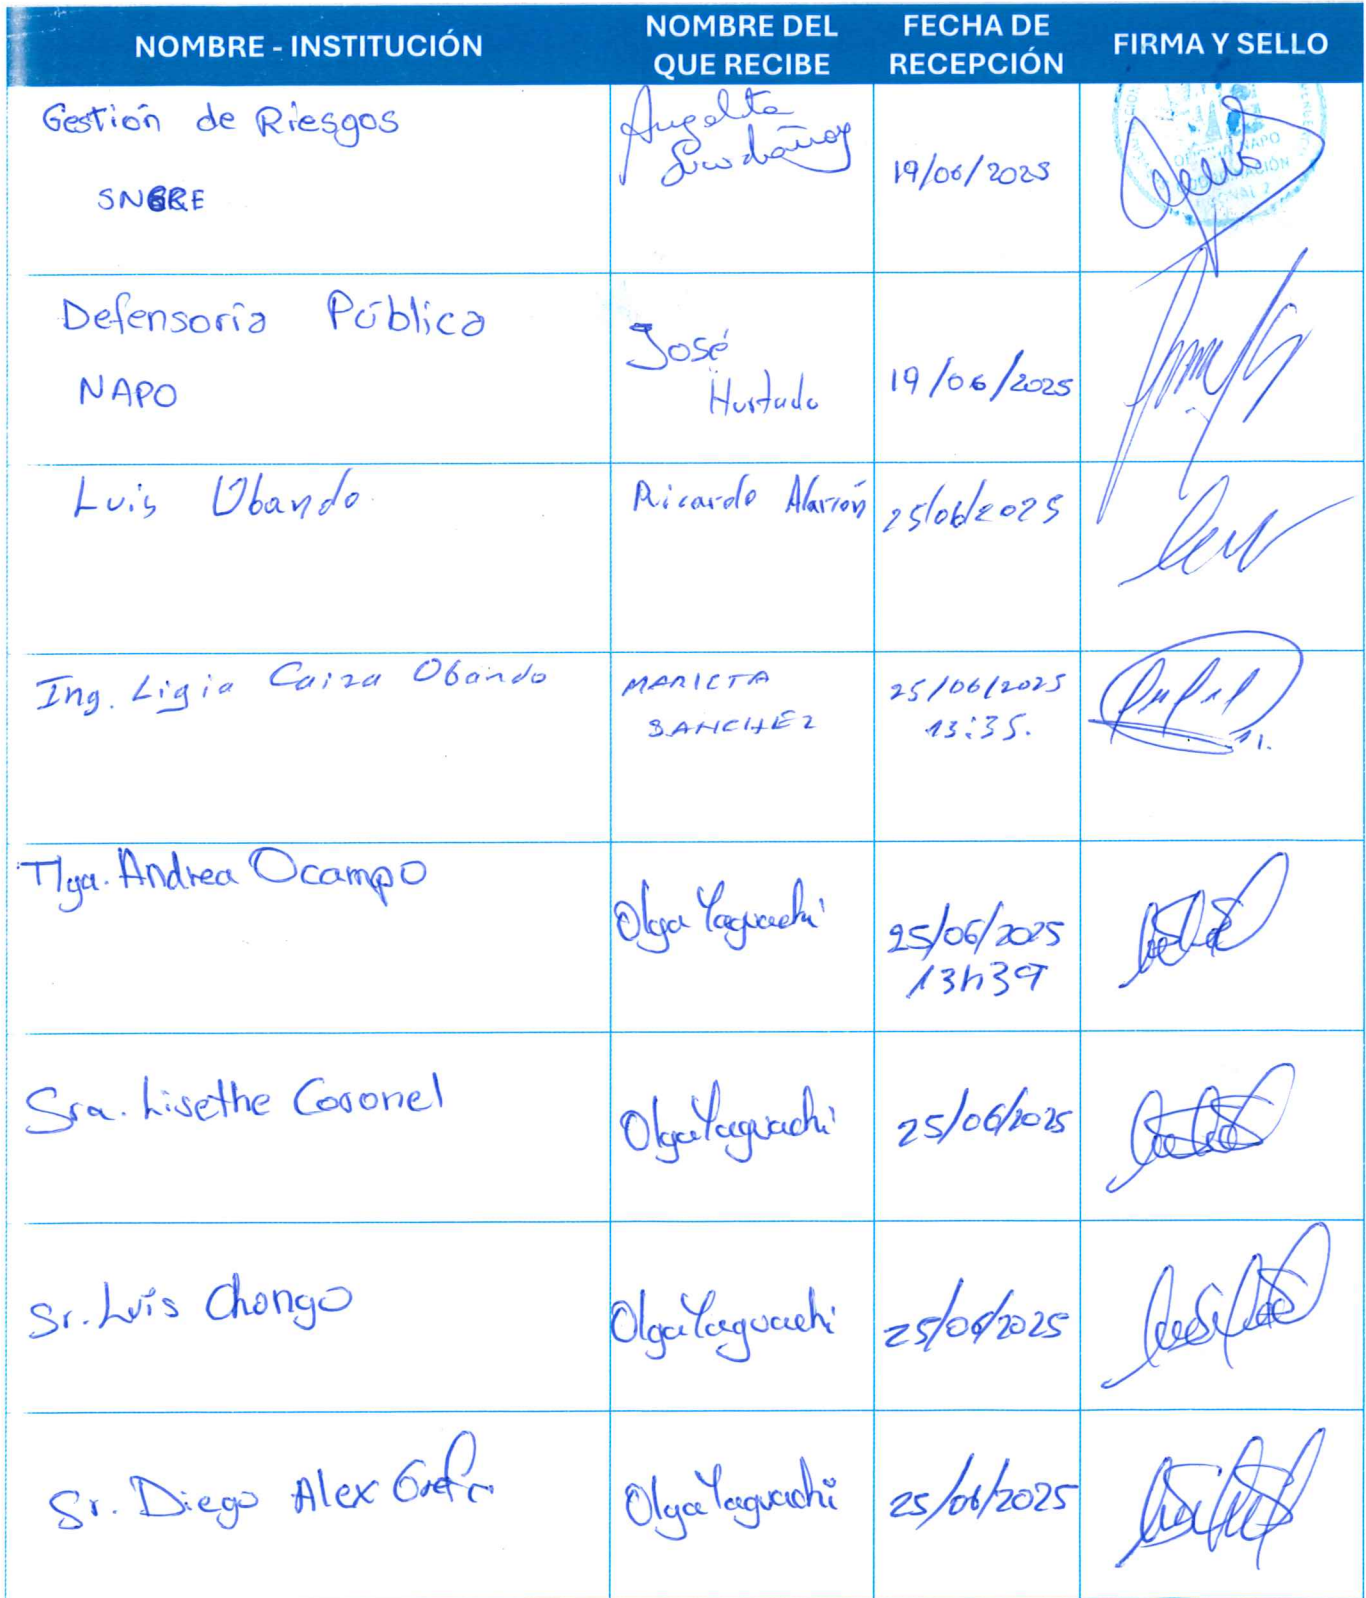 NOMBRE - INSTITUCIÓN
NOMBRE DEL
QUE RECIBE
FECHA DE
RECEPCIÓN
FIRMA Y SELLO
Gestión de Riesgos
SNGRE
19/06/2025
NAPO
Defensoría Pública
NAPO
José
Hurtado
19/06/2025
Luis Obando
Ricardo Alarcón
25/06/2025
Ing. Ligia Caiza Obando
MARIETA
SANCHEZ
25/06/2025
13:35.
Tlga. Andrea Ocampo
Olga Yaguachi
25/06/2025
13h39
Sra. Lisethe Coronel
Olga Yaguachi
25/06/2025
Sr. Luis Chongo
Olga Yaguachi
25/06/2025
Sr. Diego Alex
Olga Yaguachi
25/06/2025